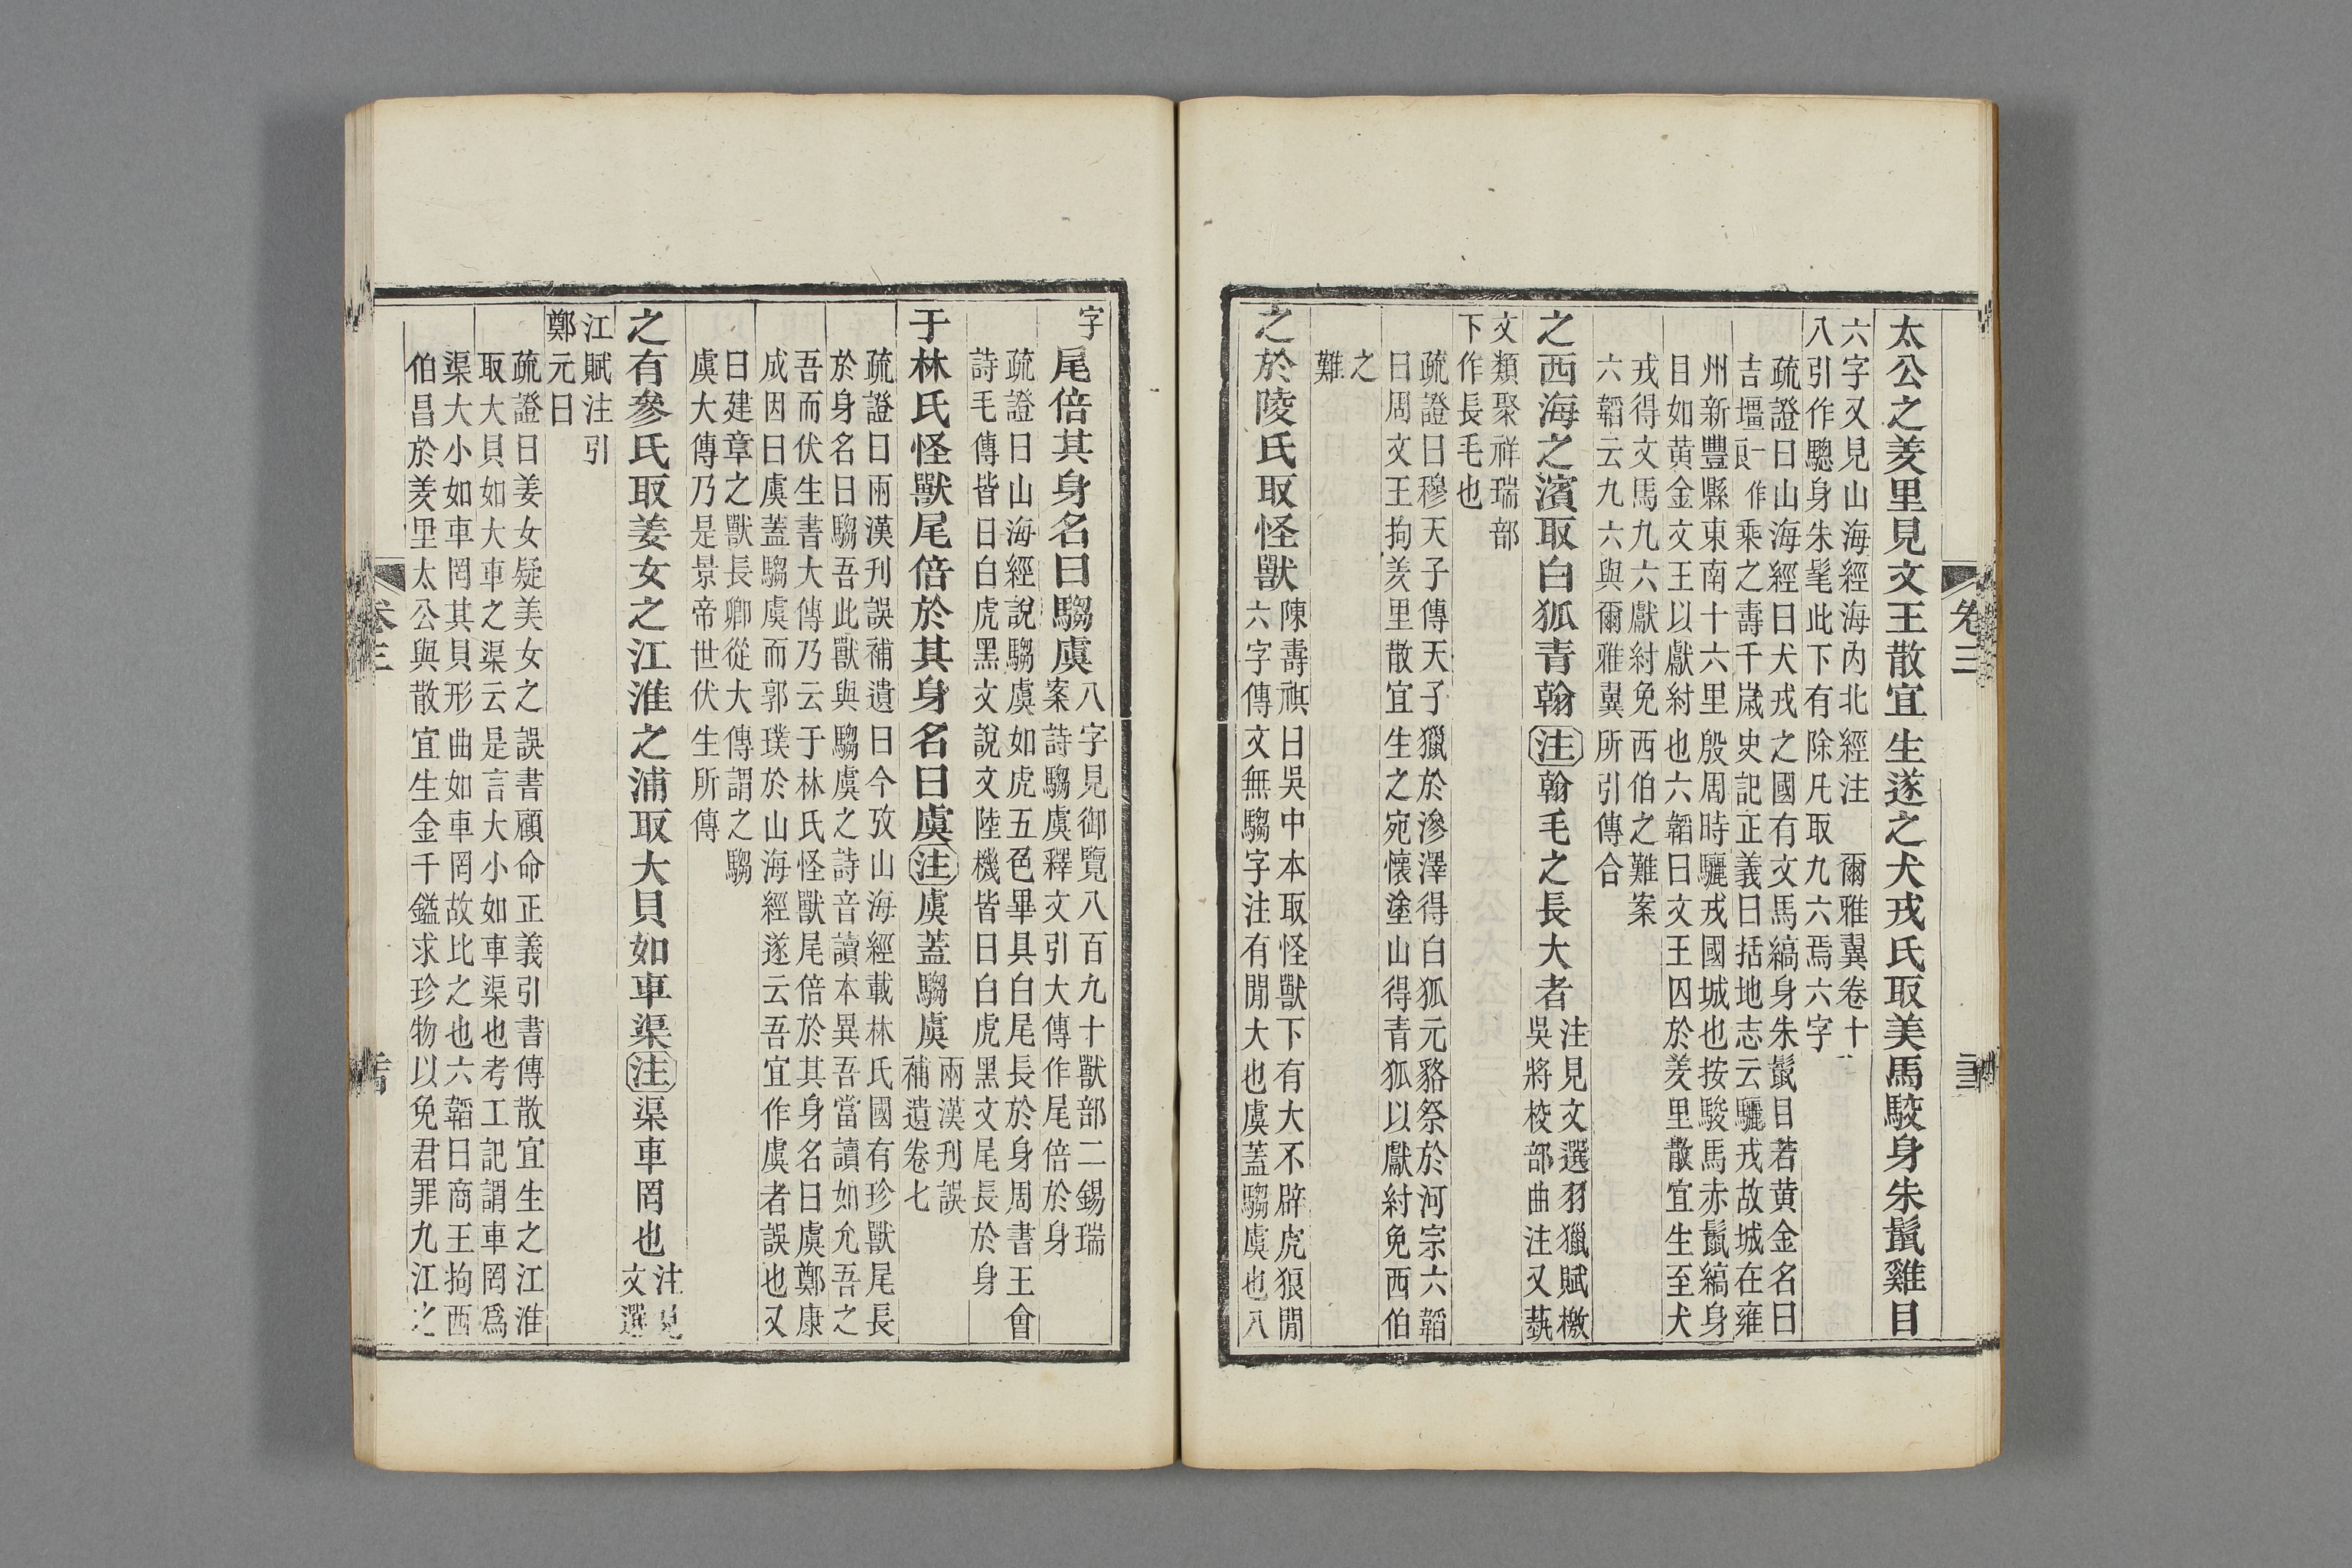 卷三
三
太公之羑里見文王散宜生遂之犬戎氏取美馬駮身朱鬛雞目
六字又見山海經海內北經注 爾雅翼卷十
八引作驄身朱髦此下有除凡取九六焉六字
疏證曰山海經曰犬戎之國有文馬縞身朱鬛目若黄金名曰
吉壃一作乘之壽千歲史記正義曰括地志云驪戎故城在雍
州新豐縣東南十六里殷周時驪戎國城也按駿馬赤鬛縞身
目如黄金文王以獻紂也六韜曰文王囚於羑里散宜生至犬
戎得文馬九六獻紂免西伯之難案
六韜云九六與爾雅翼所引傳合
之西海之濱取白狐青翰注翰毛之長大者
注見文選羽獵賦檄
吳將校部曲注又蓺
文類聚祥瑞部
下作長毛也
疏證曰穆天子傳天子獵於滲澤得白狐元貉祭於河宗六韜
曰周文王拘羑里散宜生之宛懷塗山得青狐以獻紂免西伯
之
難
之於陵氏取怪獸
陳壽祺曰吳中本取怪獸下有大不辟虎狼閒
六字傳文無騶字注有閒大也虞蓋騶虞也八
字
尾倍其身名曰騶虞
八字見御覽八百九十獸部二錫瑞
案詩騶虞釋文引大傳作尾倍於身
疏證曰山海經說騶虞如虎五色畢具白尾長於身周書王會
詩毛傳皆曰白虎黑文說文陸機皆曰白虎黑文尾長於身
于林氏怪獸尾倍於其身名曰虞注虞蓋騶虞
兩漢刊誤
補遺卷七
疏證曰兩漢刊誤補遺曰今攷山海經載林氏國有珍獸尾長
於身名曰騶吾此獸與騶虞之詩音讀本異吾當讀如允吾之
吾而伏生書大傳乃云于林氏怪獸尾倍於其身名曰虞鄭康
成因曰虞蓋騶虞而郭璞於山海經遂云吾宜作虞者誤也又
曰建章之獸長卿從大傳謂之騶
虞大傳乃是景帝世伏生所傳
之有參氏取姜女之江淮之浦取大貝如車渠注渠車罔也
注見
文選
江賦注引
鄭元曰
疏證曰姜女疑美女之誤書顧命正義引書傳散宜生之江淮
取大貝如大車之渠云是言大小如車渠也考工記謂車罔爲
渠大小如車罔其貝形曲如車罔故比之也六韜曰商王拘西
伯昌於羑里太公與散宜生金千鎰求珍物以免君罪九江之
卷三